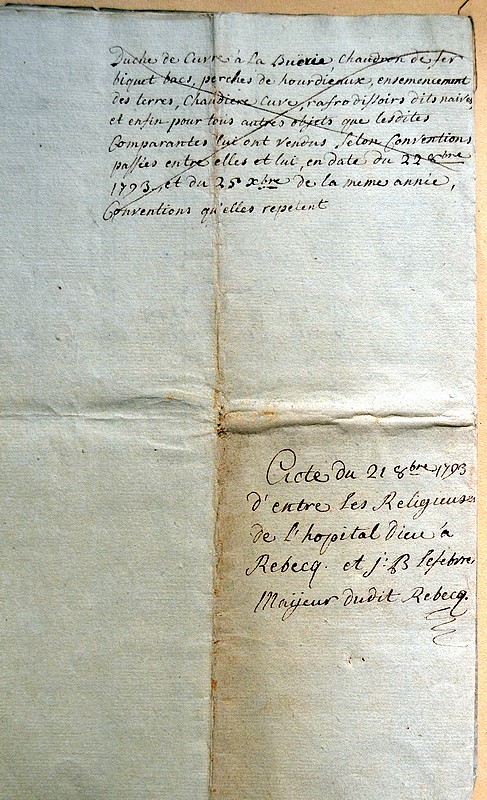 Duche de Cuvre à La Buërie, Chaudron de fer
biquet bacs, perches de hourdieaux, ensemencement
des terres, Chaudiere Cuve, rafrodissoirs dits naives
et enfin pour tous autres objets que lesdites
Comparantes lui ont vendus, selon Conventions
passées entre elles et lui, en date du 22 8bre
1793, et du 25 Xbre de la meme année,
Conventions qu'elles repetent
Acte du 21 8bre 1793
d'entre les Religieuses
de l'hopital Dieu à
Rebecq. et j: B Lefebvre
Maÿeur dudit Rebecq.